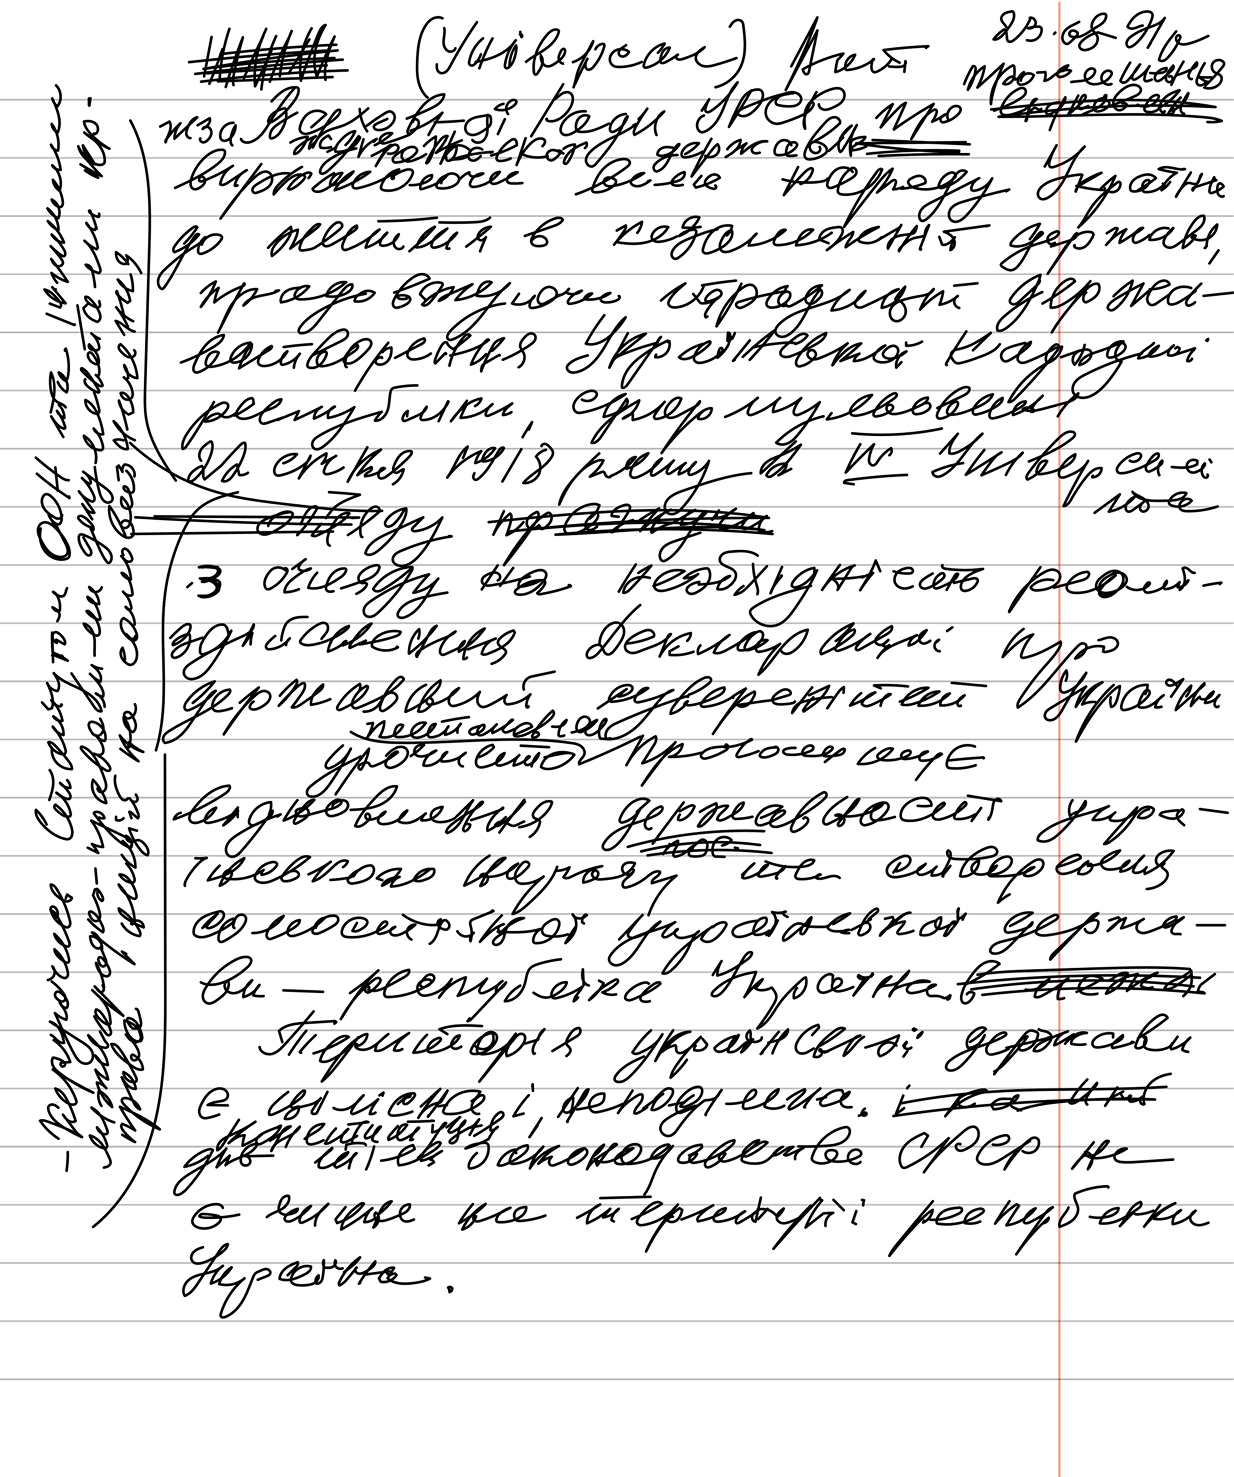 23.08.91 р
(Універсал) Акт
проголошення
Верховної Ради УРСР про
держави
виражаючи волю народу України
до життя в незалежній державі,
продовжуючи традиції держа-
вотворення Української Народної
республіки, сформульовані
22 січня 1918 року в IV Універса-лі
з огляду на необхідність
здійснення Декларації про
державний суверенітет України
урочисто проголошує
відновлення державності укра-
їнського народу та створення
самостійної української держа-
ви — республіка Україна.
Територія української держави
є цілісна і неподільна.
Конституція,
дія законодавства СРСР не
є чинне на території республіки
Україна.
- Керуючись Статутом ООН та іншими
міжнародно-правовими документами пер-
права націй на самовизначення